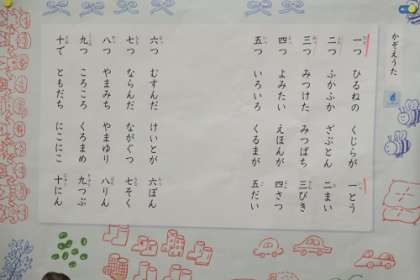 かぞえうた
一つ ひるねの くじらが 一とう
二つ ふかふか ざぶとん 二まい
三つ みつけた みつばち 三びき
四つ よみたい えほんが 四さつ
五つ いろいろ くるまが 五だい
六つ むすんだ けいとが 六ぽん
七つ ならんだ ながぐつ 七そく
八つ やまみち やまゆり 八りん
九つ ころころ くろまめ 九つぶ
十で ともだち にこにこ 十にん